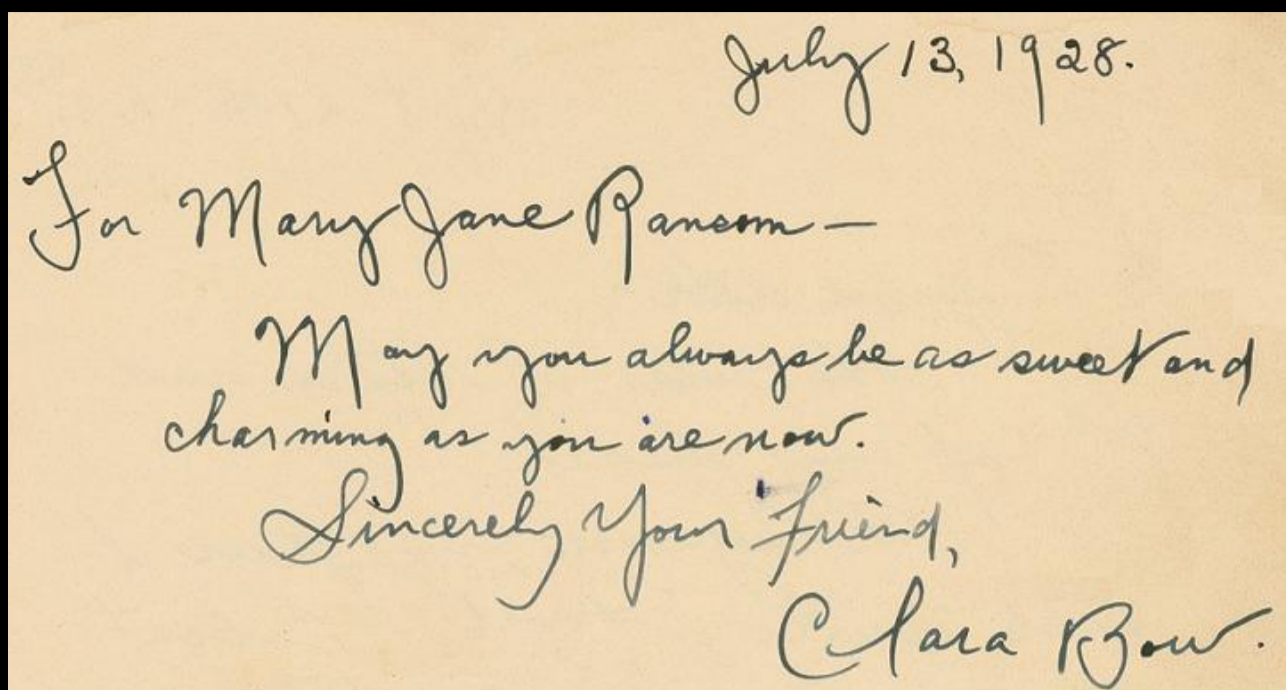 July 13, 1928.
For Mary Jane Ransom —
May you always be as sweet and
charming as you are now.
Sincerely Your Friend,
Clara Bow.